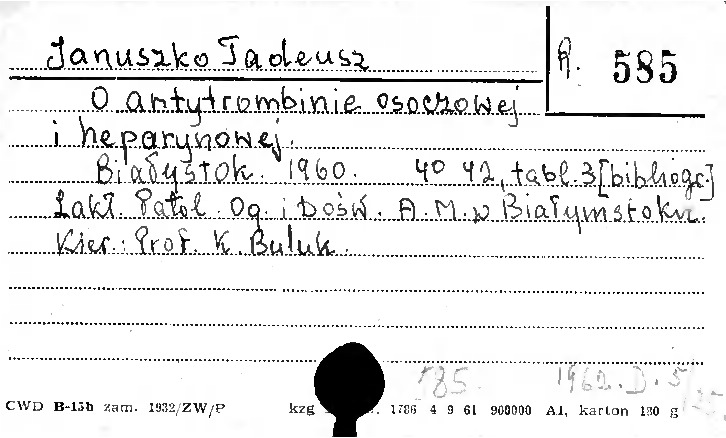 Januszko Tadeusz
R. 585
O antytrombinie osoczowej
i heparynowej.
Białystok. 1960. 4° 42, tabl. 3 [bibliogr.]
Zakł. Patol. Og. i Dośw. A. M. w Białymstoku.
Kier.: Prof. K. Buluk.
585. 1962. D. 5/25
CWD B-15b zam. 1932/ZW/P kzg 1786 4 9 61 900000 A1, karton 180 g